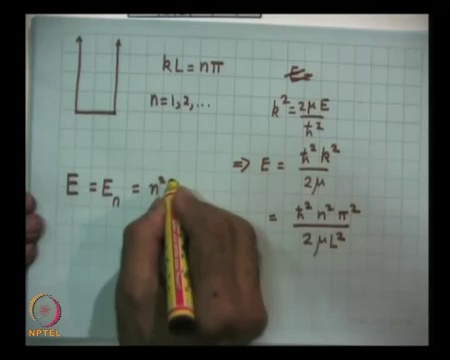 kL = nπ
n = 1, 2, ...
E =
k² = 2μE / ħ²
⇒ E = ħ²k² / 2μ
= ħ²n²π² / 2μL²
E = Eₙ = n²
NPTEL